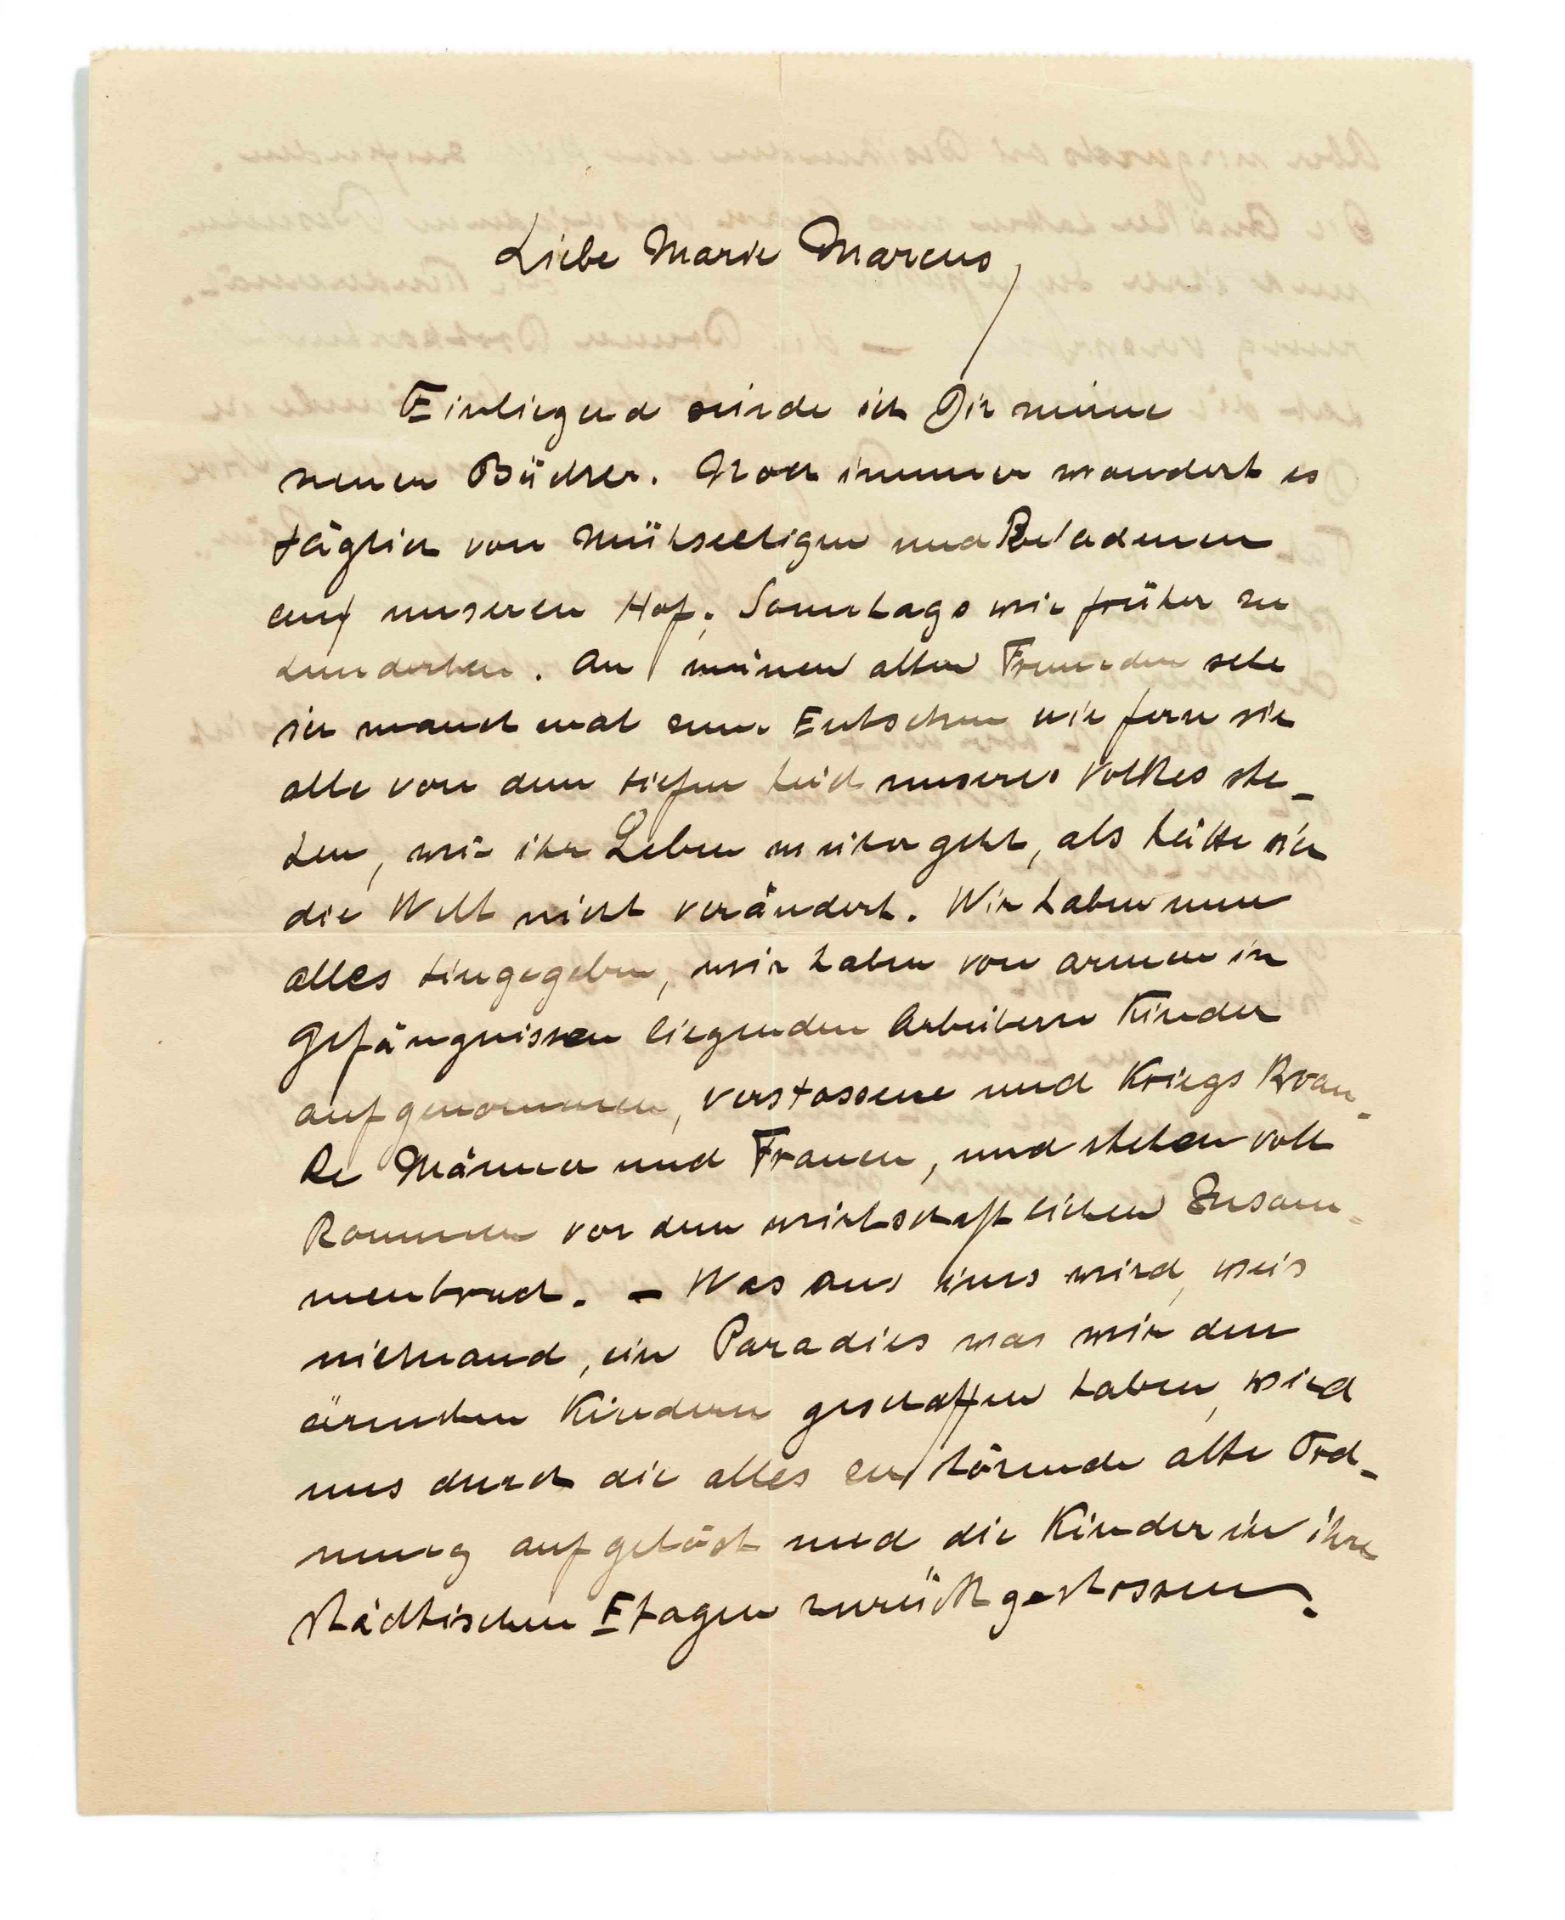 Liebe Marie Marcus,
Einliegend sende ich Dir meine
neuen Bücher. Noch immer wandert es
täglich von Mühseeligen und Beladenen
auf unseren Hof, Sonntags wie früher zu
hunderten. An meinen alten Freunden sehe
ich manch mal zum Entsetzen wie fern sie
alle von dem tiefen Leid unseres Volkes ste-
hen, wie ihr Leben weiter geht, als hätte sich
die Welt nicht verändert. Wir haben nun
alles hingegeben, wir haben von armen in
Gefängnissen liegenden Arbeitern Kinder
aufgenommen, verstossene und Kriegs kran-
ke Männer und Frauen, und stehen voll
kommen vor dem wirtschaftlichen Zusam-
menbruch. – Was aus uns wird, weis
niemand, ein Paradies was wir den
ärmsten Kindern geschaffen haben, wird
uns durch die alles zerstörende alte Ord-
nung aufgelöst und die Kinder in ihre
städtischen Etagen zurückgestossen.